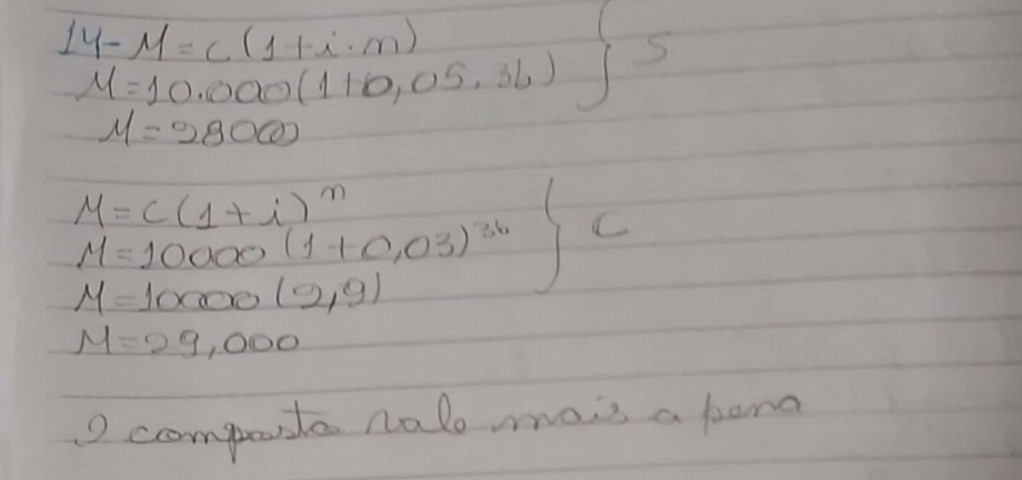 14- M = C (1 + i . n)
M = 10.000 (1 + 0,05 . 36) } S
M = 28000
M = C (1 + i)ⁿ
M = 10000 (1 + 0,03)³⁶ } C
M = 10000 (2,9)
M = 29,000
O composto vale mais a pena